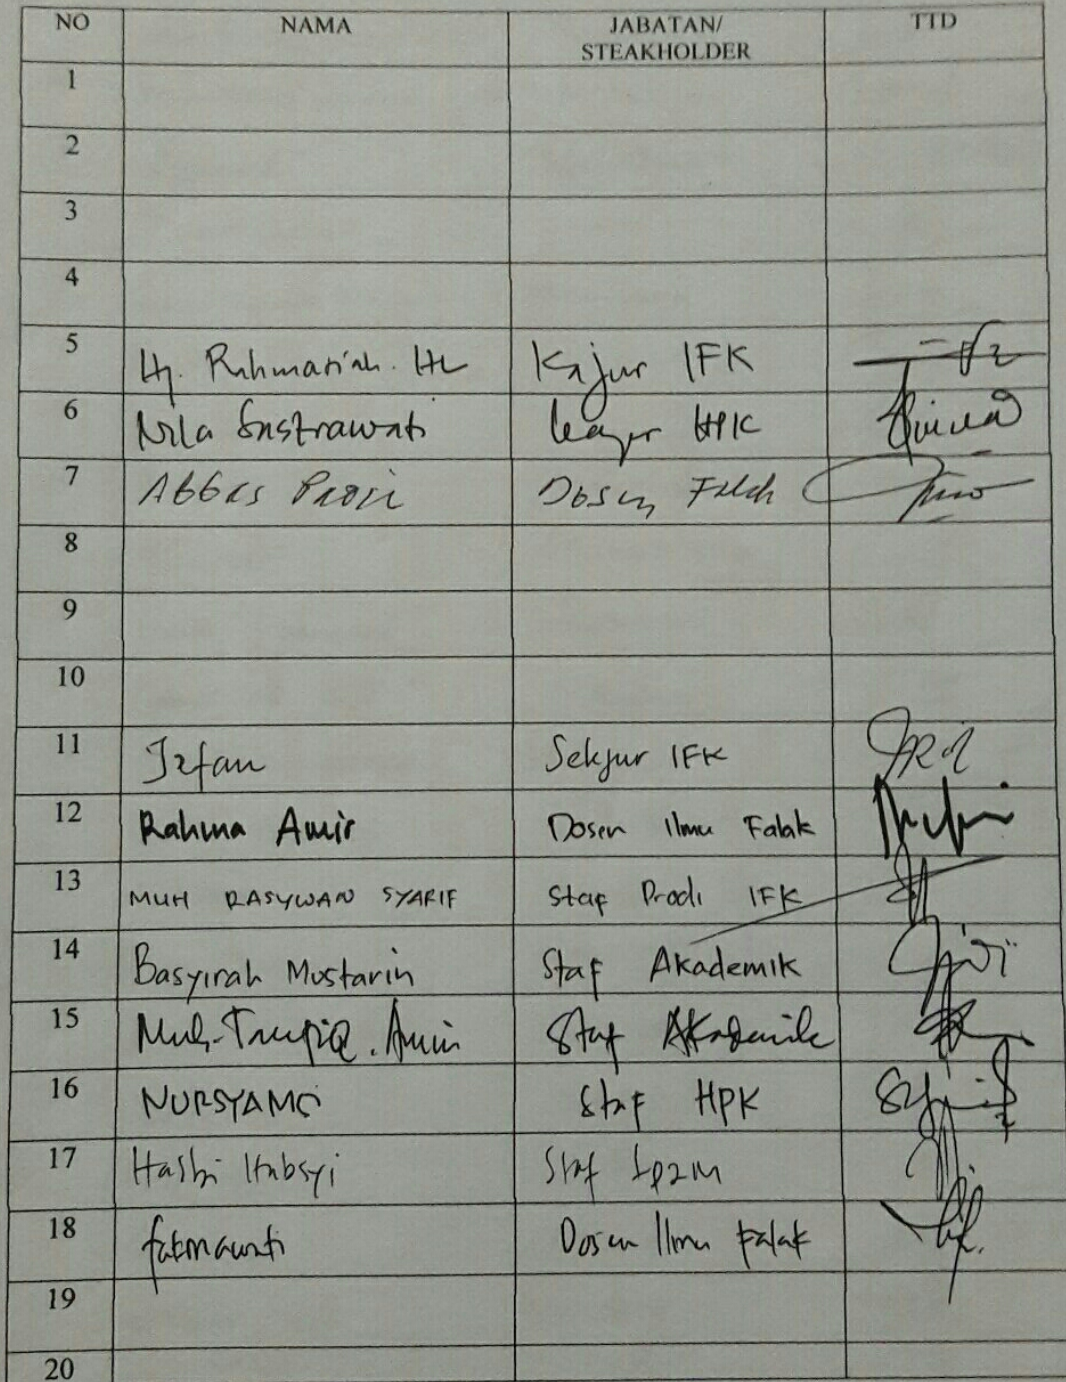 NO NAMA JABATAN/ TTD
STEAKHOLDER
1
2
3
4
5 Hj. Rahmatiah. HL Kajur IFK
6 Nila Sastrawati Kajur HPK
7 Abbas Dosen Falak
8
9
10
11 Irfan Sekjur IFK
12 Rahma Amir Dosen Ilmu Falak
13 MUH RASYWAN SYARIF Staf Prodi IFK
14 Basyirah Mustarin Staf Akademik
15 Muh-Taufiq. Amin Staf Akademik
16 NURSYAMSI Staf HPK
17 Hasbi Habsyi Staf Lp2M
18 fatmawati Dosen Ilmu Falak
19
20